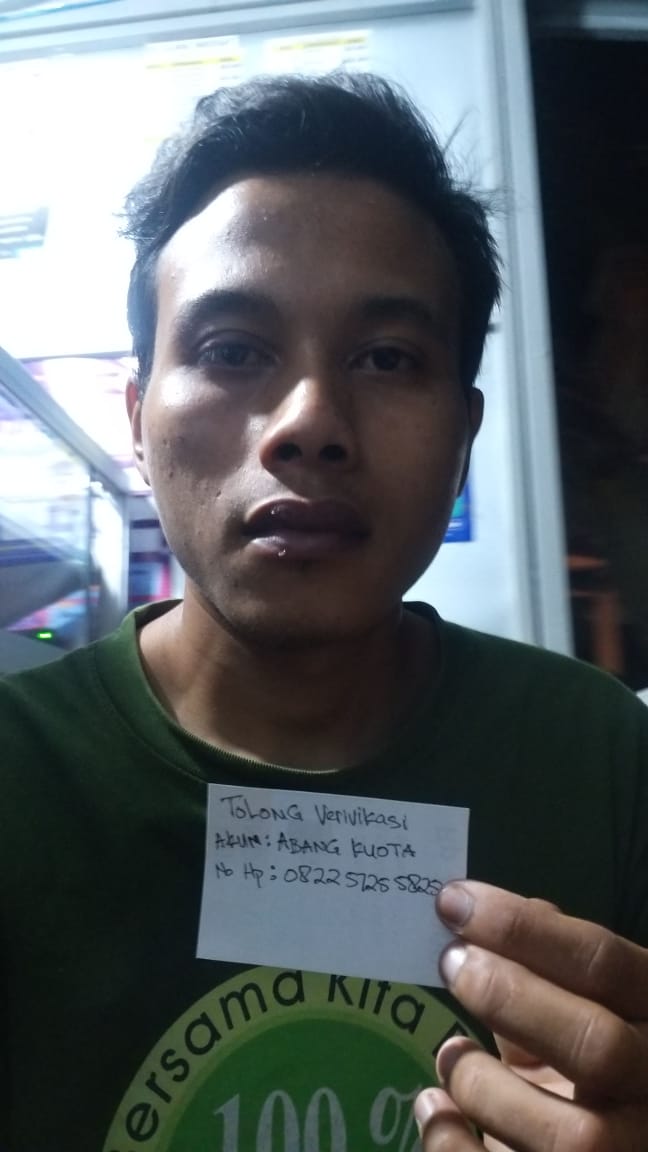 TOLONG Verivikasi
AKUN: ABANG KUOTA
No Hp: 0822 5725 5825
ersama Kita
100 %